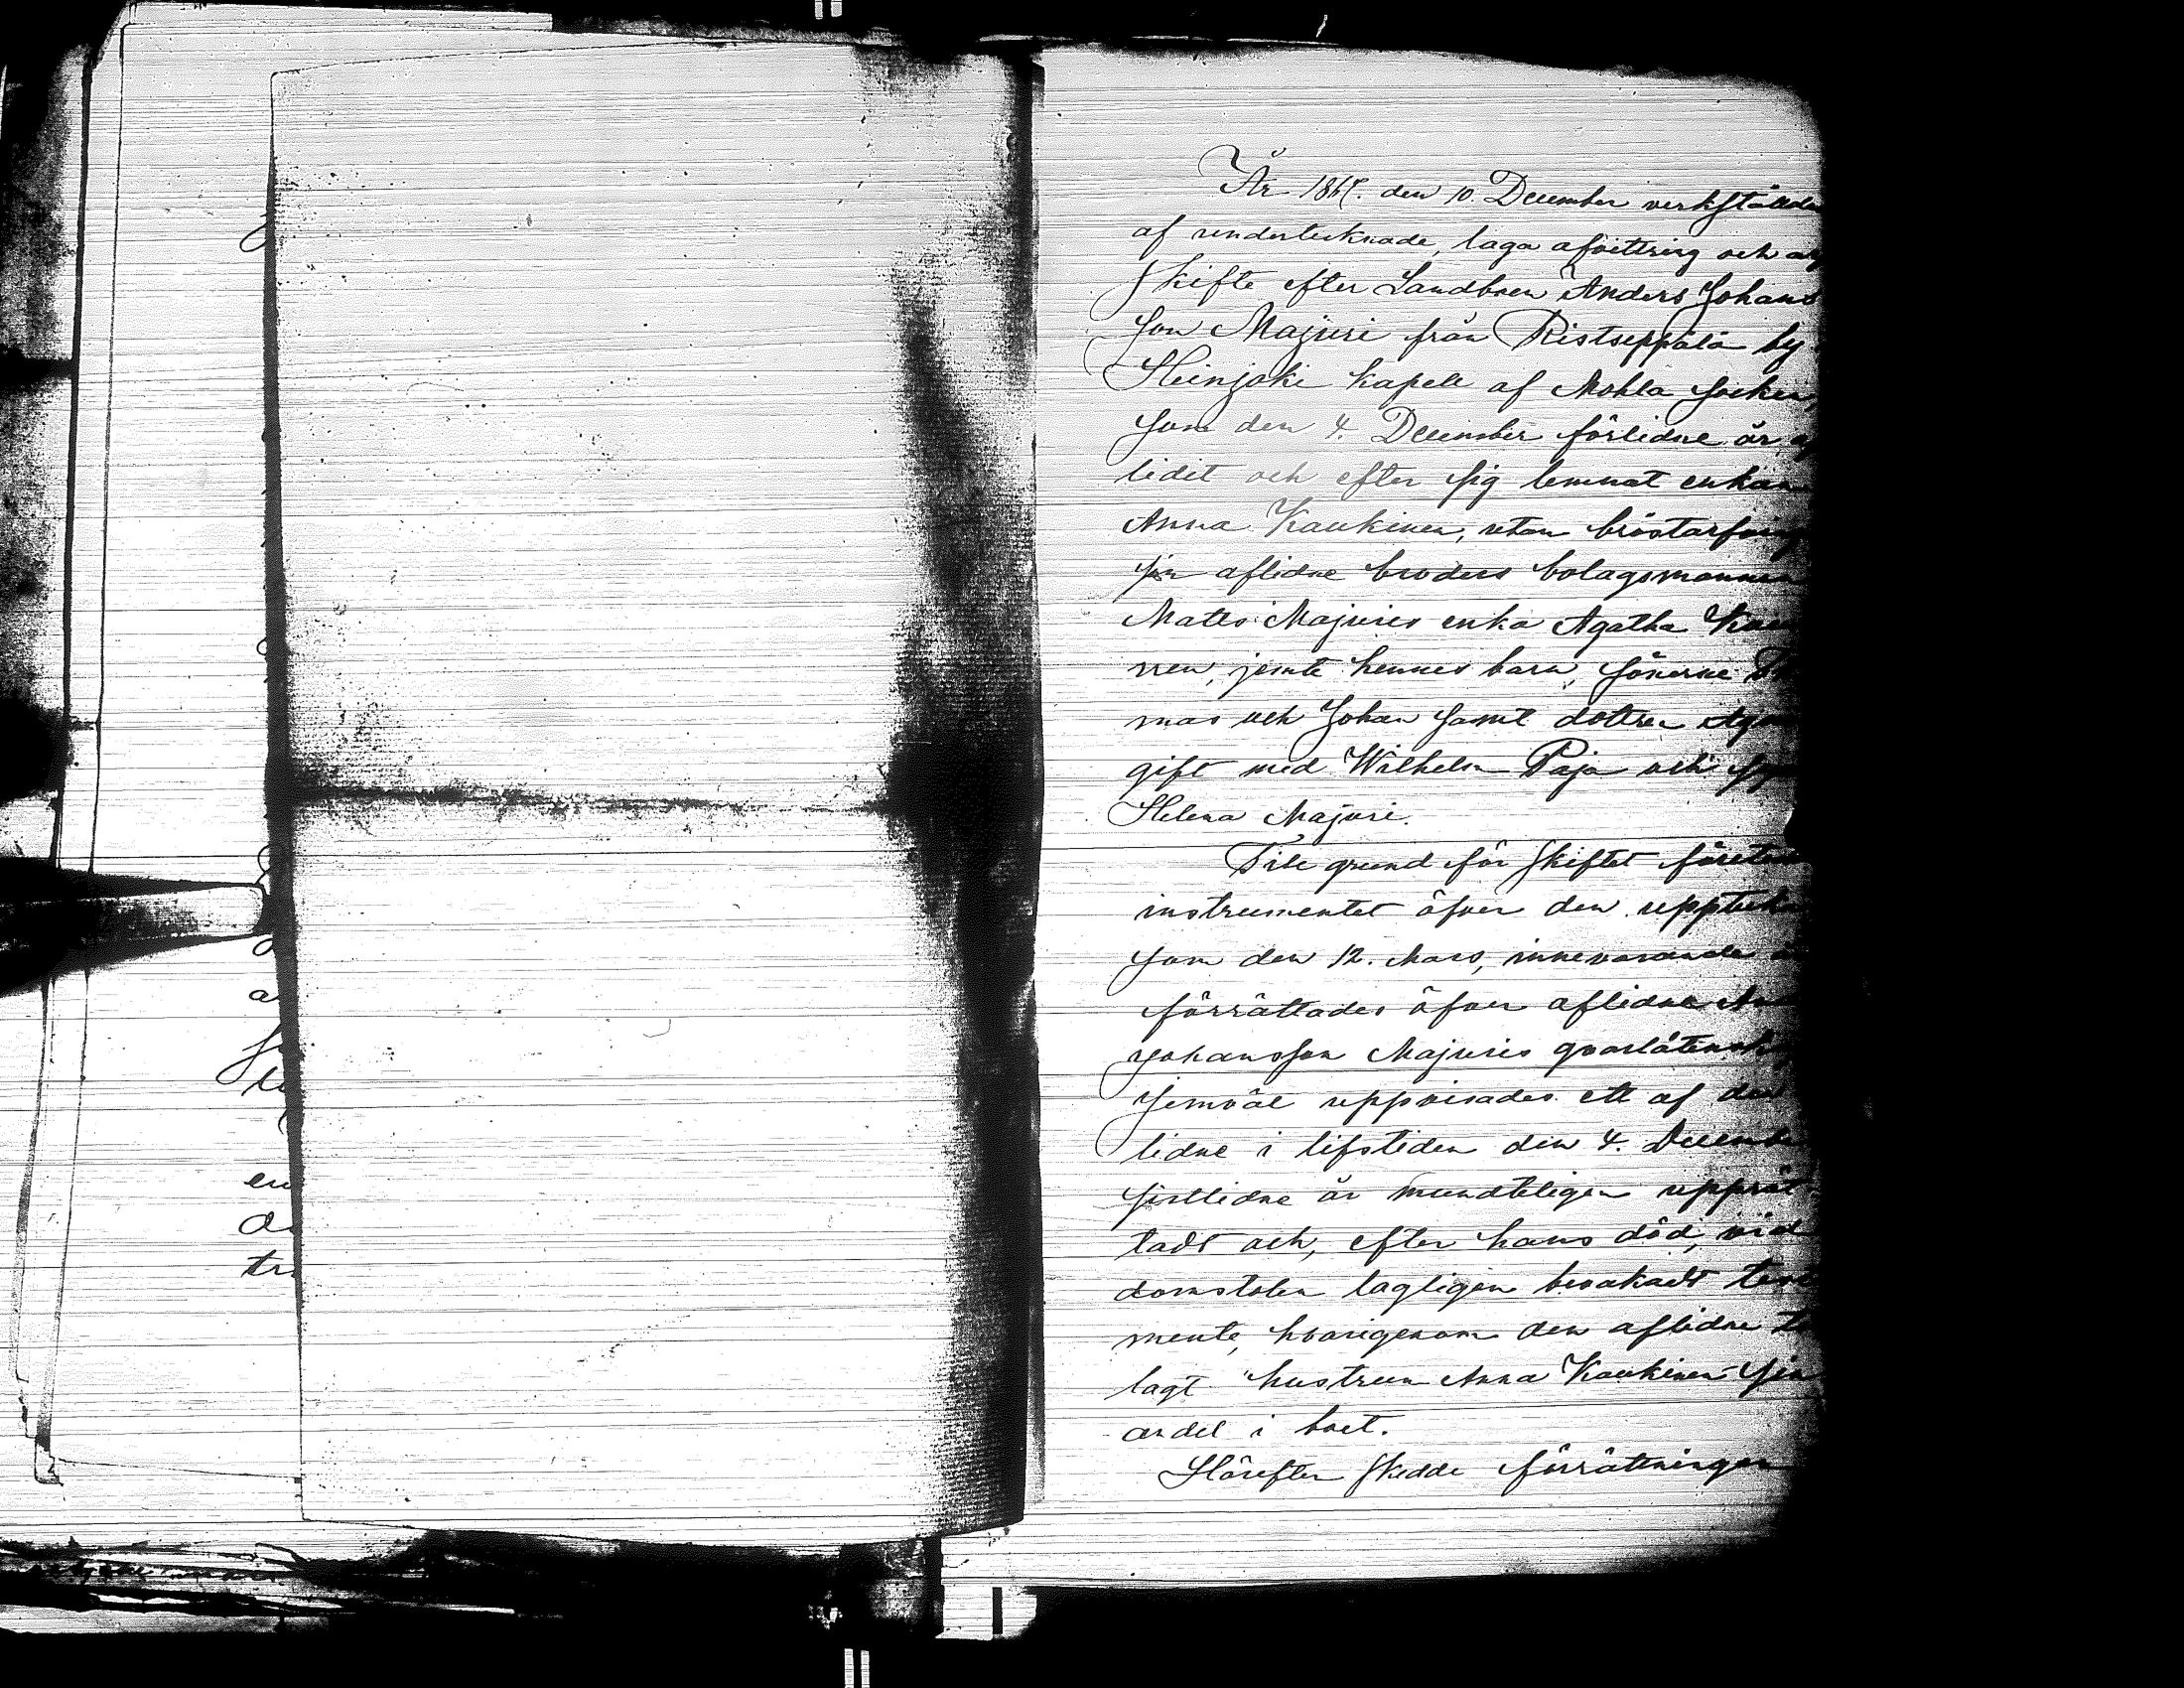 År 186 den 10. December verkstälde
af undertecknade, laga afvittring och
skifte efter Landboen Anders Johans
son Majuri från Ristseppälä by
Heinjoki kapell af Mohla socken,
som den 4. December förlidne år
lidit och efter sig lemnat enkan
Anna Kaukinen, utan bröstarfving
sin aflidne broders bolagsmannen
Matts Majuris enka Agatha
nen, jemte hennes barn, sönerne
mas och Johan samt dottren
gift med Wilhelm Paja och
Helena Majuri.
Till grund för skiftet
instrumentet öfver den
som den 12. Mars, innevarande
förrättades öfver aflidne
Johansson Majuris qvarlåtenskap
Jemväl uppvisades ett af den
lidne i lifstiden den 4. December
sistlidne år mundteligen upprät
tadt och, efter hans död, vid
domstolen lagligen bevakadt testa
mente, hvarigenom den aflidne
lagt hustrun Anna Kaukinen sin
andel i boet.
Härefter skedde förrättningen
a
en
tr